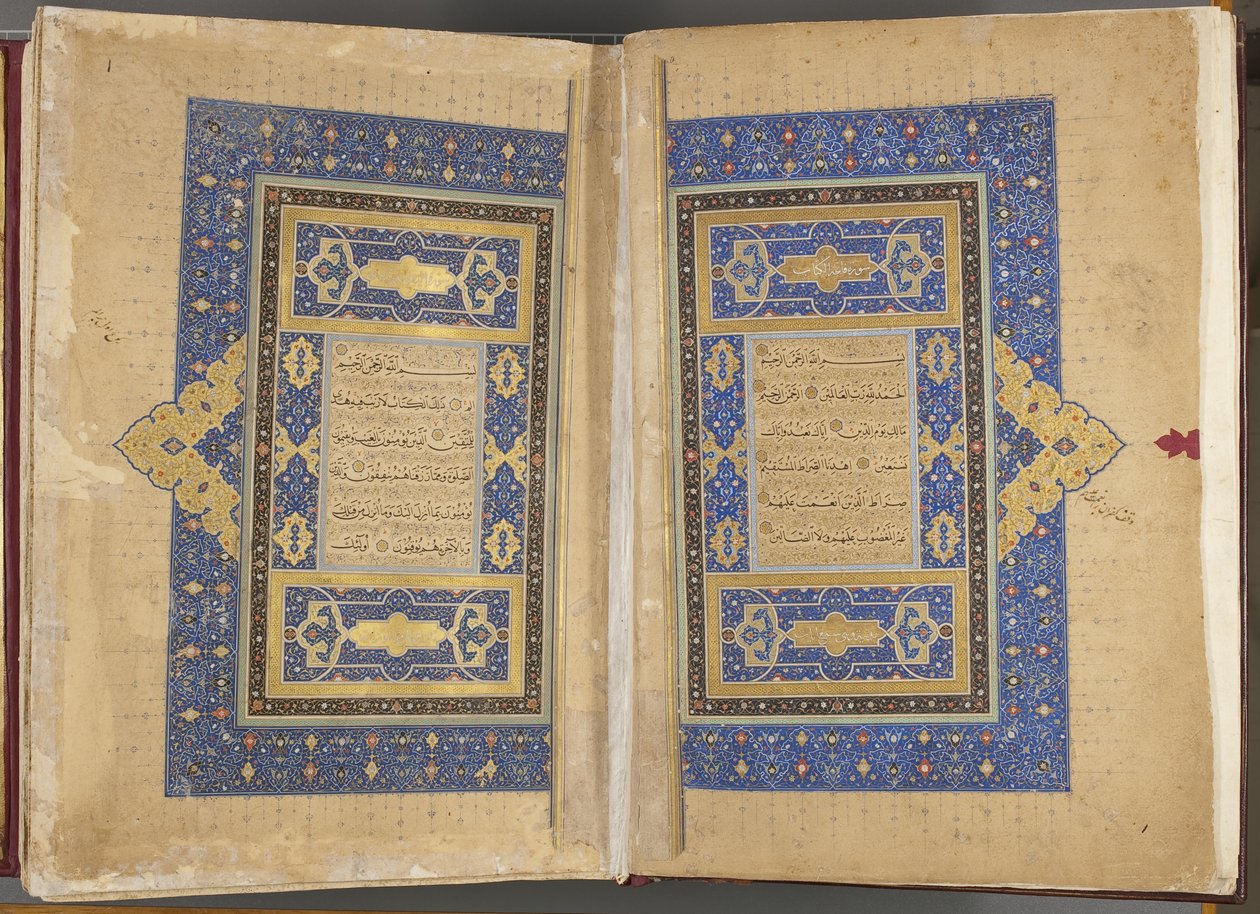 سورة فاتحة الكتاب
بِسْمِ اللَّهِ الرَّحْمَنِ الرَّحِيمِ
الْحَمْدُ لِلَّهِ رَبِّ الْعَالَمِينَ الرَّحْمَنِ الرَّحِيمِ
مَالِكِ يَوْمِ الدِّينِ إِيَّاكَ نَعْبُدُ وَإِيَّاكَ
نَسْتَعِينُ اِهْدِنَا الصِّرَاطَ الْمُسْتَقِيمَ
صِرَاطَ الَّذِينَ أَنْعَمْتَ عَلَيْهِمْ
غَيْرِ الْمَغْضُوبِ عَلَيْهِمْ وَلَا الضَّالِّينَ
بِسْمِ اللَّهِ الرَّحْمَنِ الرَّحِيمِ
الم ذَلِكَ الْكِتَابُ لَا رَيْبَ فِيهِ هُدًى
لِلْمُتَّقِينَ الَّذِينَ يُؤْمِنُونَ بِالْغَيْبِ وَيُقِيمُونَ
الصَّلٰوةَ وَمِمَّا رَزَقْنَاهُمْ يُنْفِقُونَ وَالَّذِينَ
يُؤْمِنُونَ بِمَا أُنْزِلَ إِلَيْكَ وَمَا أُنْزِلَ مِنْ قَبْلِكَ
وَبِالْآخِرَةِ هُمْ يُوقِنُونَ أُولَئِكَ